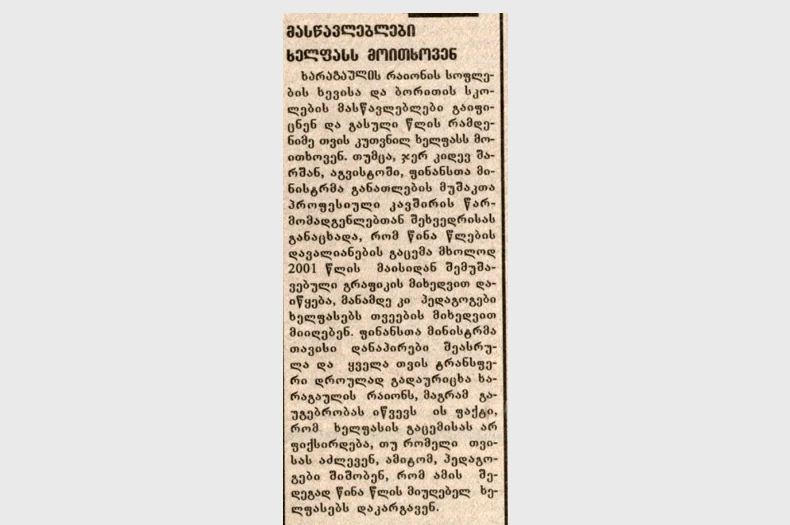 მასწავლებლები
ხელფასს მოითხოვენ
ხარაგაულის რაიონის სოფლე-
ბის ხევისა და ბორითის სკო-
ლების მასწავლებლები გაიფი-
ცნენ და გასული წლის რამდე-
ნიმე თვის კუთვნილ ხელფასს მო-
ითხოვენ. თუმცა, ჯერ კიდევ შა-
რშან, აგვისტოში, ფინანსთა მი-
ნისტრმა განათლების მუშაკთა
პროფესიული კავშირის წარ-
მომადგენლებთან შეხვედრისას
განაცხადა, რომ წინა წლების
დავალიანების გაცემა მხოლოდ
2001 წლის მაისიდან შემუშა-
ვებული გრაფიკის მიხედვით და-
იწყება, მანამდე კი პედაგოგები
ხელფასებს თვეების მიხედვით
მიიღებენ. ფინანსთა მინისტრმა
თავისი დანაპირები შეასრუ-
ლა და ყველა თვის ტრანსფე-
რი დროულად გადაურიცხა ხა-
რაგაულის რაიონს, მაგრამ გა-
უგებრობას იწვევს ის ფაქტი,
რომ ხელფასის გაცემისას არ
ფიქსირდება, თუ რომელი თვი-
სას აძლევენ, ამიტომ, პედაგო-
გები შიშობენ, რომ ამის შე-
დეგად წინა წლის მიუღებელ ხე-
ლფასებს დაკარგავენ.